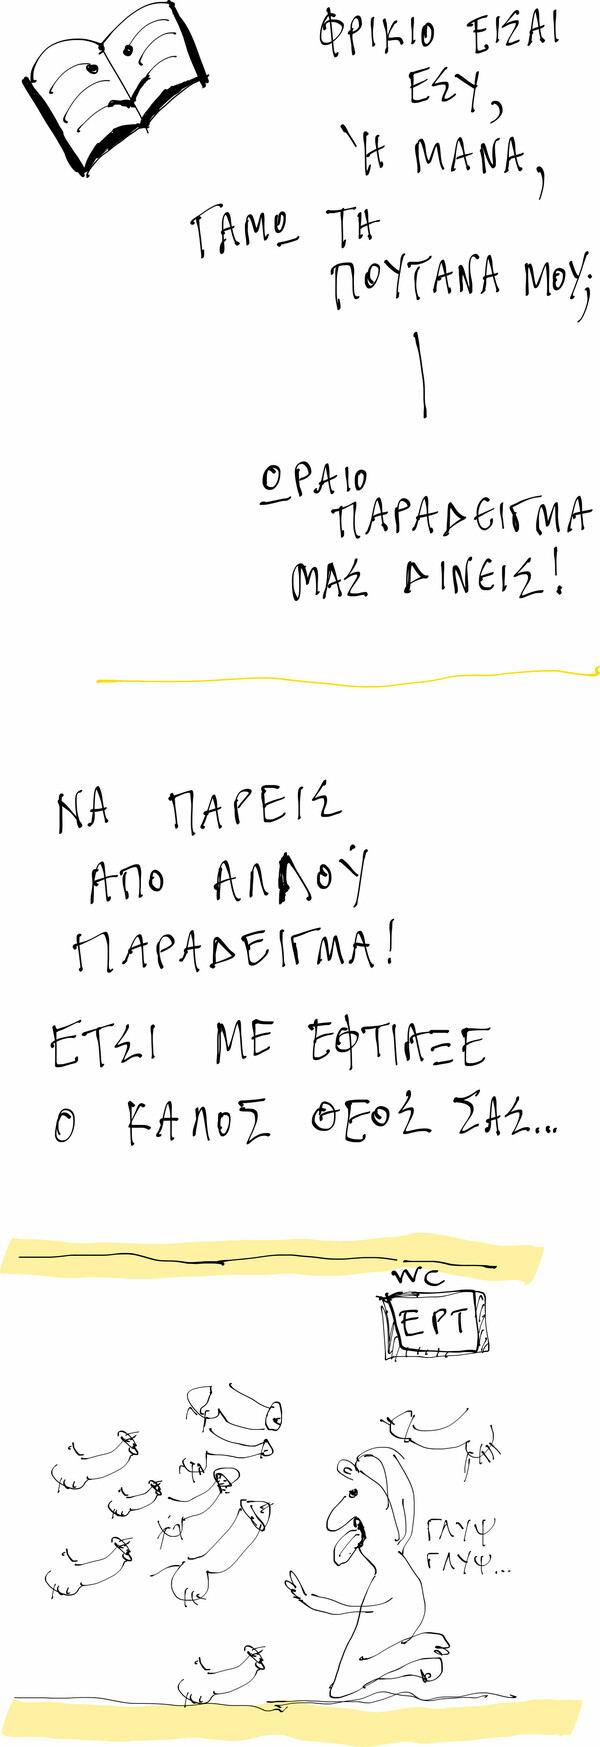 ΦΡΙΚΙΟ ΕΙΣΑΙ
ΕΣΥ,
Ή ΜΑΝΑ,
ΓΑΜΩ ΤΗ
ΠΟΥΤΑΝΑ ΜΟΥ;
ΩΡΑΙΟ
ΠΑΡΑΔΕΙΓΜΑ
ΜΑΣ ΔΙΝΕΙΣ!
ΝΑ ΠΑΡΕΙΣ
ΑΠΟ ΑΛΛΟΥ
ΠΑΡΑΔΕΙΓΜΑ!
ΕΤΣΙ ΜΕ ΕΦΤΙΑΞΕ
Ο ΚΑΛΟΣ ΘΕΟΣ ΣΑΣ...
WC
ΕΡΤ
ΓΛΥΨ
ΓΛΥΨ...